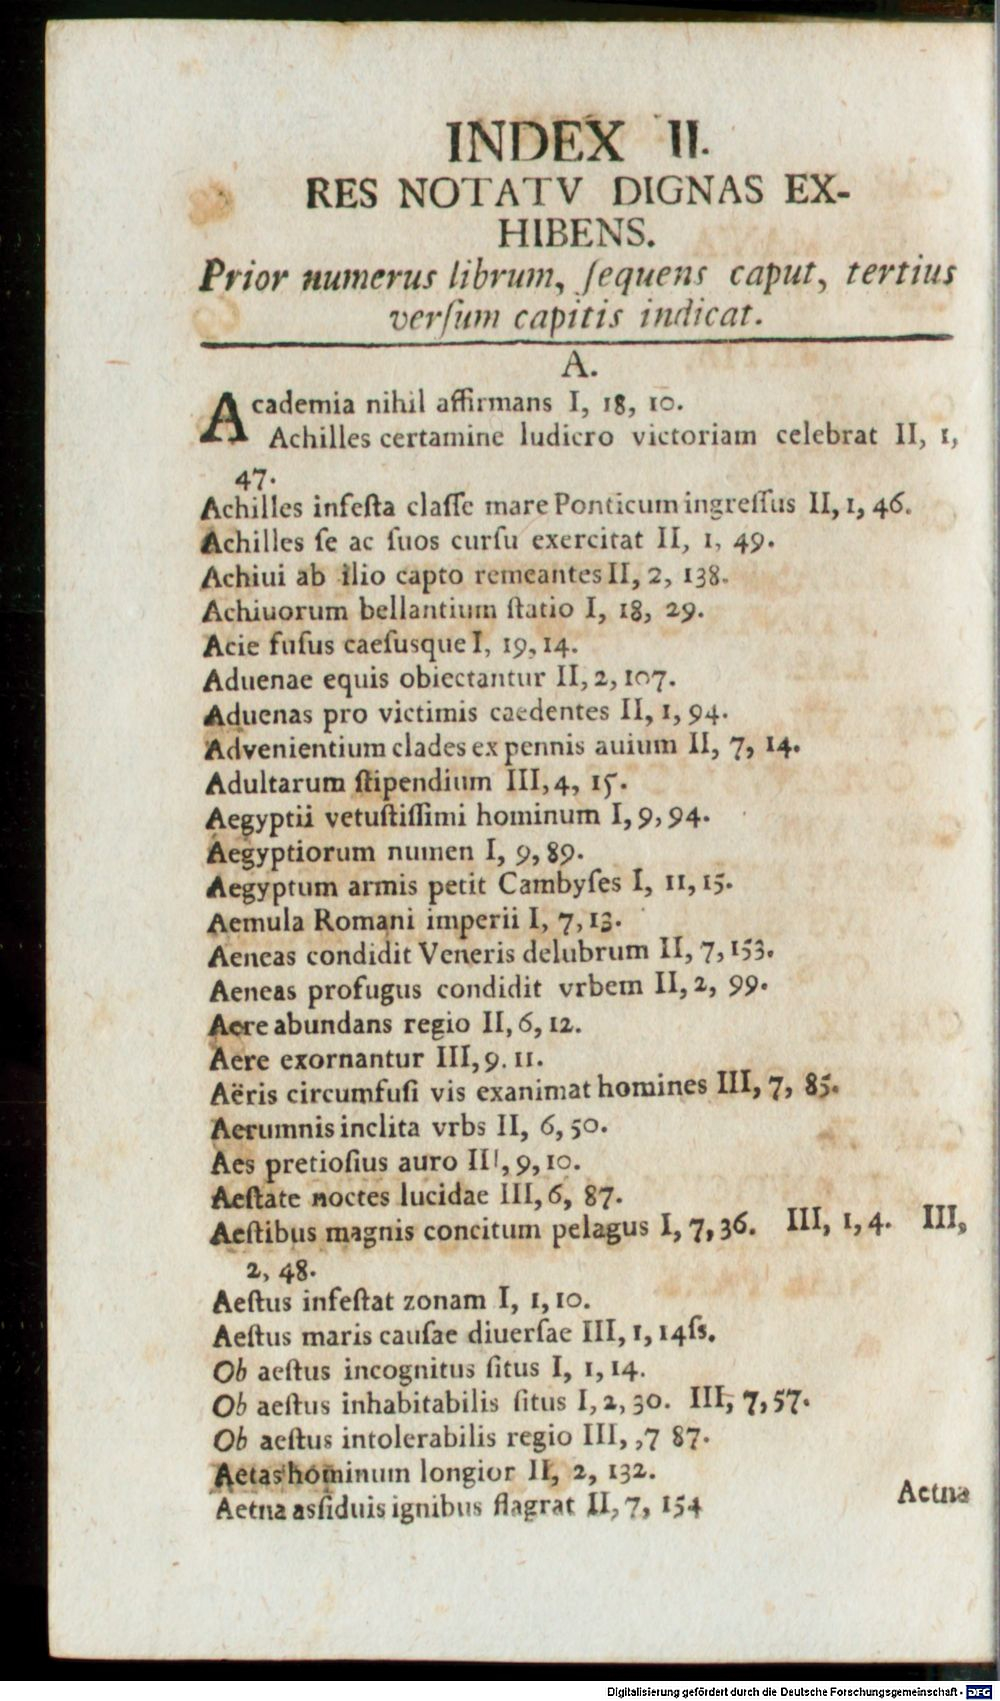 INDEX II.
RES NOTATV DIGNAS EX-
HIBENS.
Prior numerus librum, ſequens caput, tertius
verſum capitis indicat.
A.
Academia nihil affirmans I, 18, 10.
Achilles certamine ludicro victoriam celebrat II, 1,
47.
Achilles infeſta claſſe mare Ponticum ingreſſus II, 1, 46.
Achilles ſe ac ſuos curſu exercitat II, 1, 49.
Achiui ab ilio capto remeantes II, 2, 138.
Achiuorum bellantium ſtatio I, 18, 29.
Acie fuſus caeſusque I, 19, 14.
Aduenae equis obiectantur II, 2, 107.
Aduenas pro victimis caedentes II, 1, 94.
Advenientium clades ex pennis auium II, 7, 14.
Adultarum ſtipendium III, 4, 15.
Aegyptii vetuſtiſſimi hominum I, 9, 94.
Aegyptiorum numen I, 9, 89.
Aegyptum armis petit Cambyſes I, 11, 15.
Aemula Romani imperii I, 7, 13.
Aeneas condidit Veneris delubrum II, 7, 153.
Aeneas profugus condidit vrbem II, 2, 99.
Aere abundans regio II, 6, 12.
Aere exornantur III, 9. 11.
Aëris circumfuſi vis exanimat homines III, 7, 85.
Aerumnis inclita vrbs II, 6, 50.
Aes pretioſius auro III, 9, 10.
Aeſtate noctes lucidae III, 6, 87.
Aeſtibus magnis concitum pelagus I, 7, 36. III, 1, 4. III,
2, 48.
Aeſtus infeſtat zonam I, 1, 10.
Aeſtus maris cauſae diuerſae III, 1, 14ſs.
Ob aeſtus incognitus ſitus I, 1, 14.
Ob aeſtus inhabitabilis ſitus I, 2, 30. III, 7, 57.
Ob aeſtus intolerabilis regio III, ,7 87.
Aetas hominum longior II, 2, 132.
Aetna asſiduis ignibus flagrat II, 7, 154
Aetna
Digitalisierung gefördert durch die Deutsche Forschungsgemeinschaft - DFG